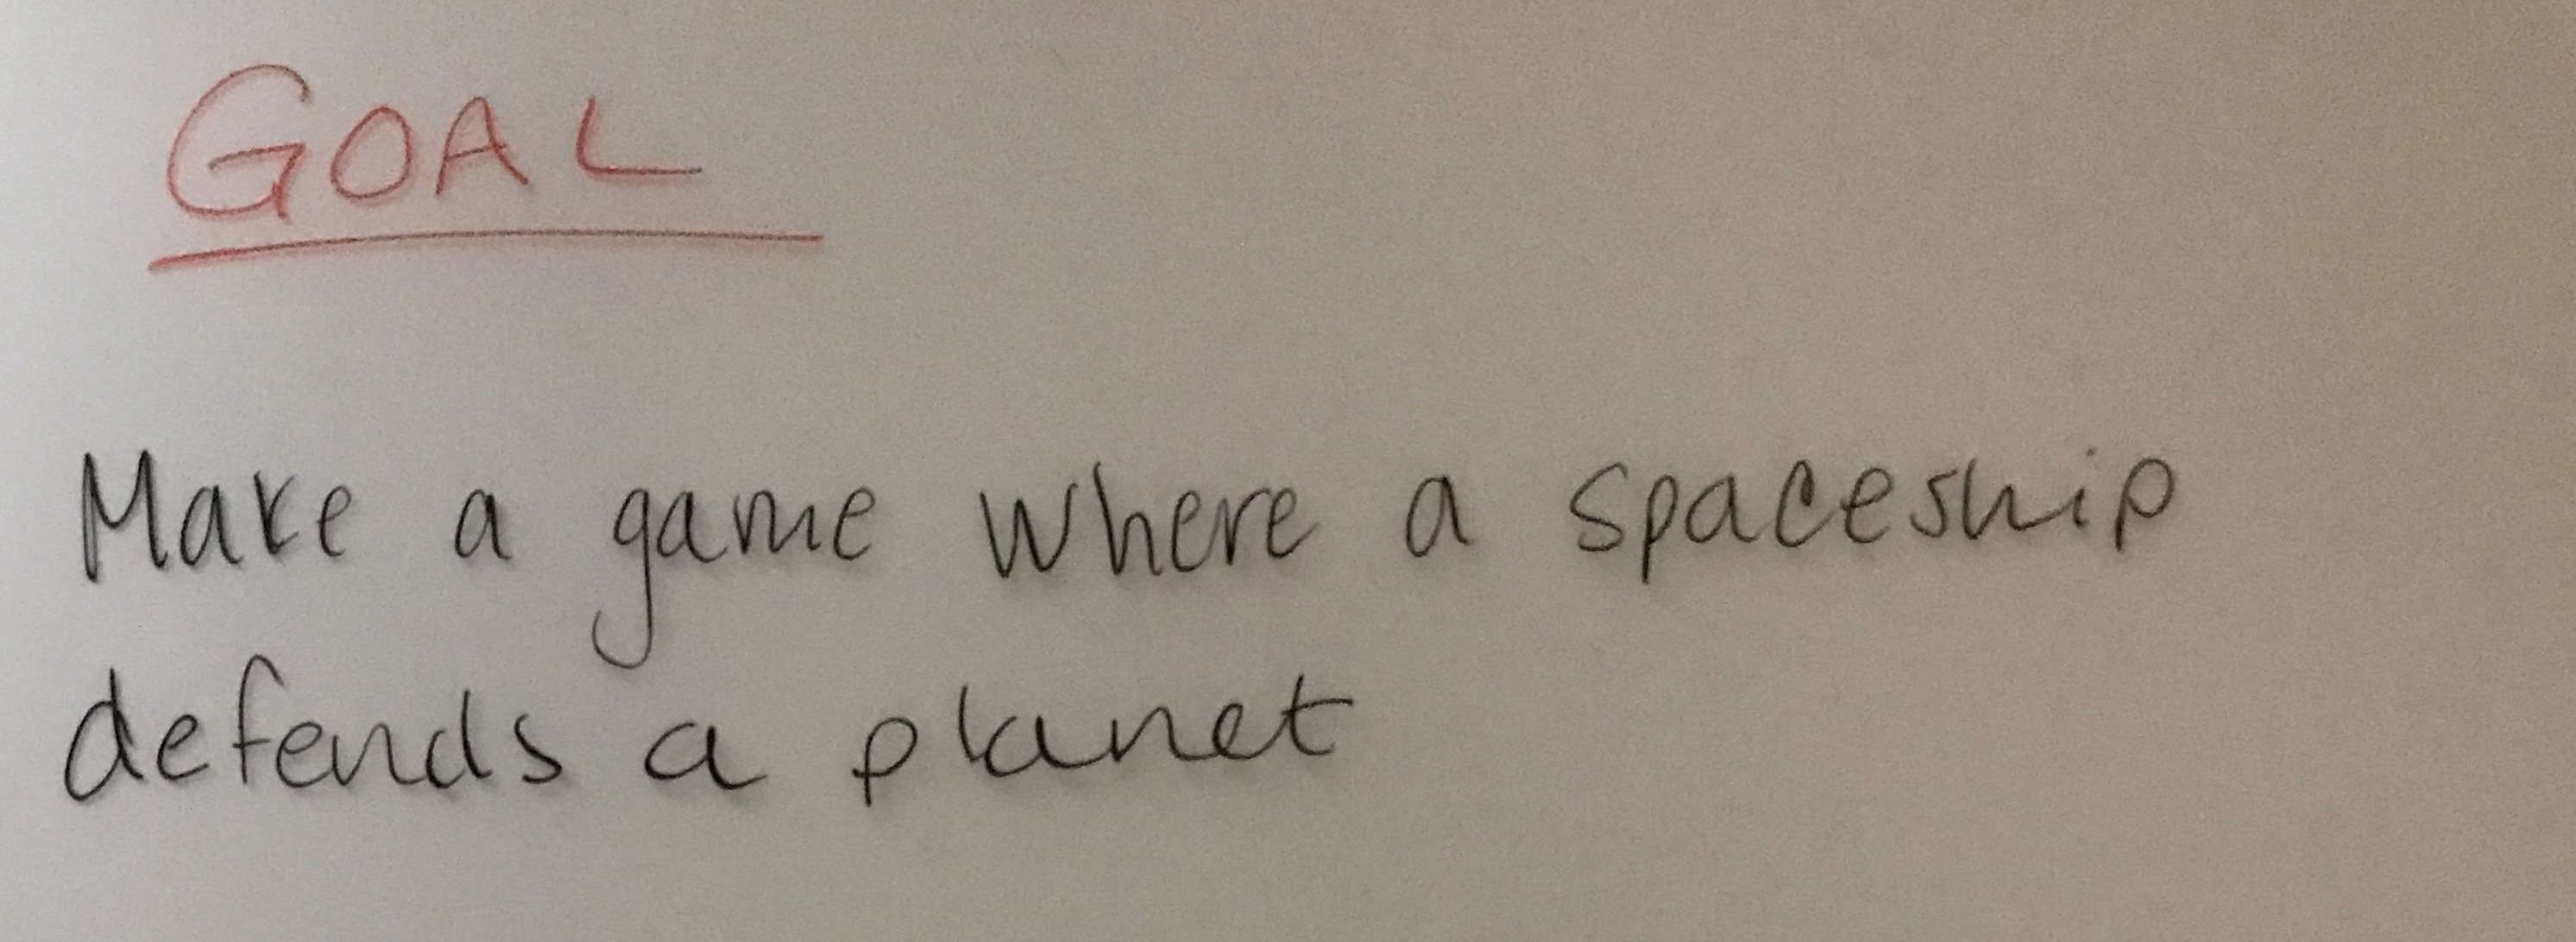 GOAL
Make a game where a spaceship
defends a planet